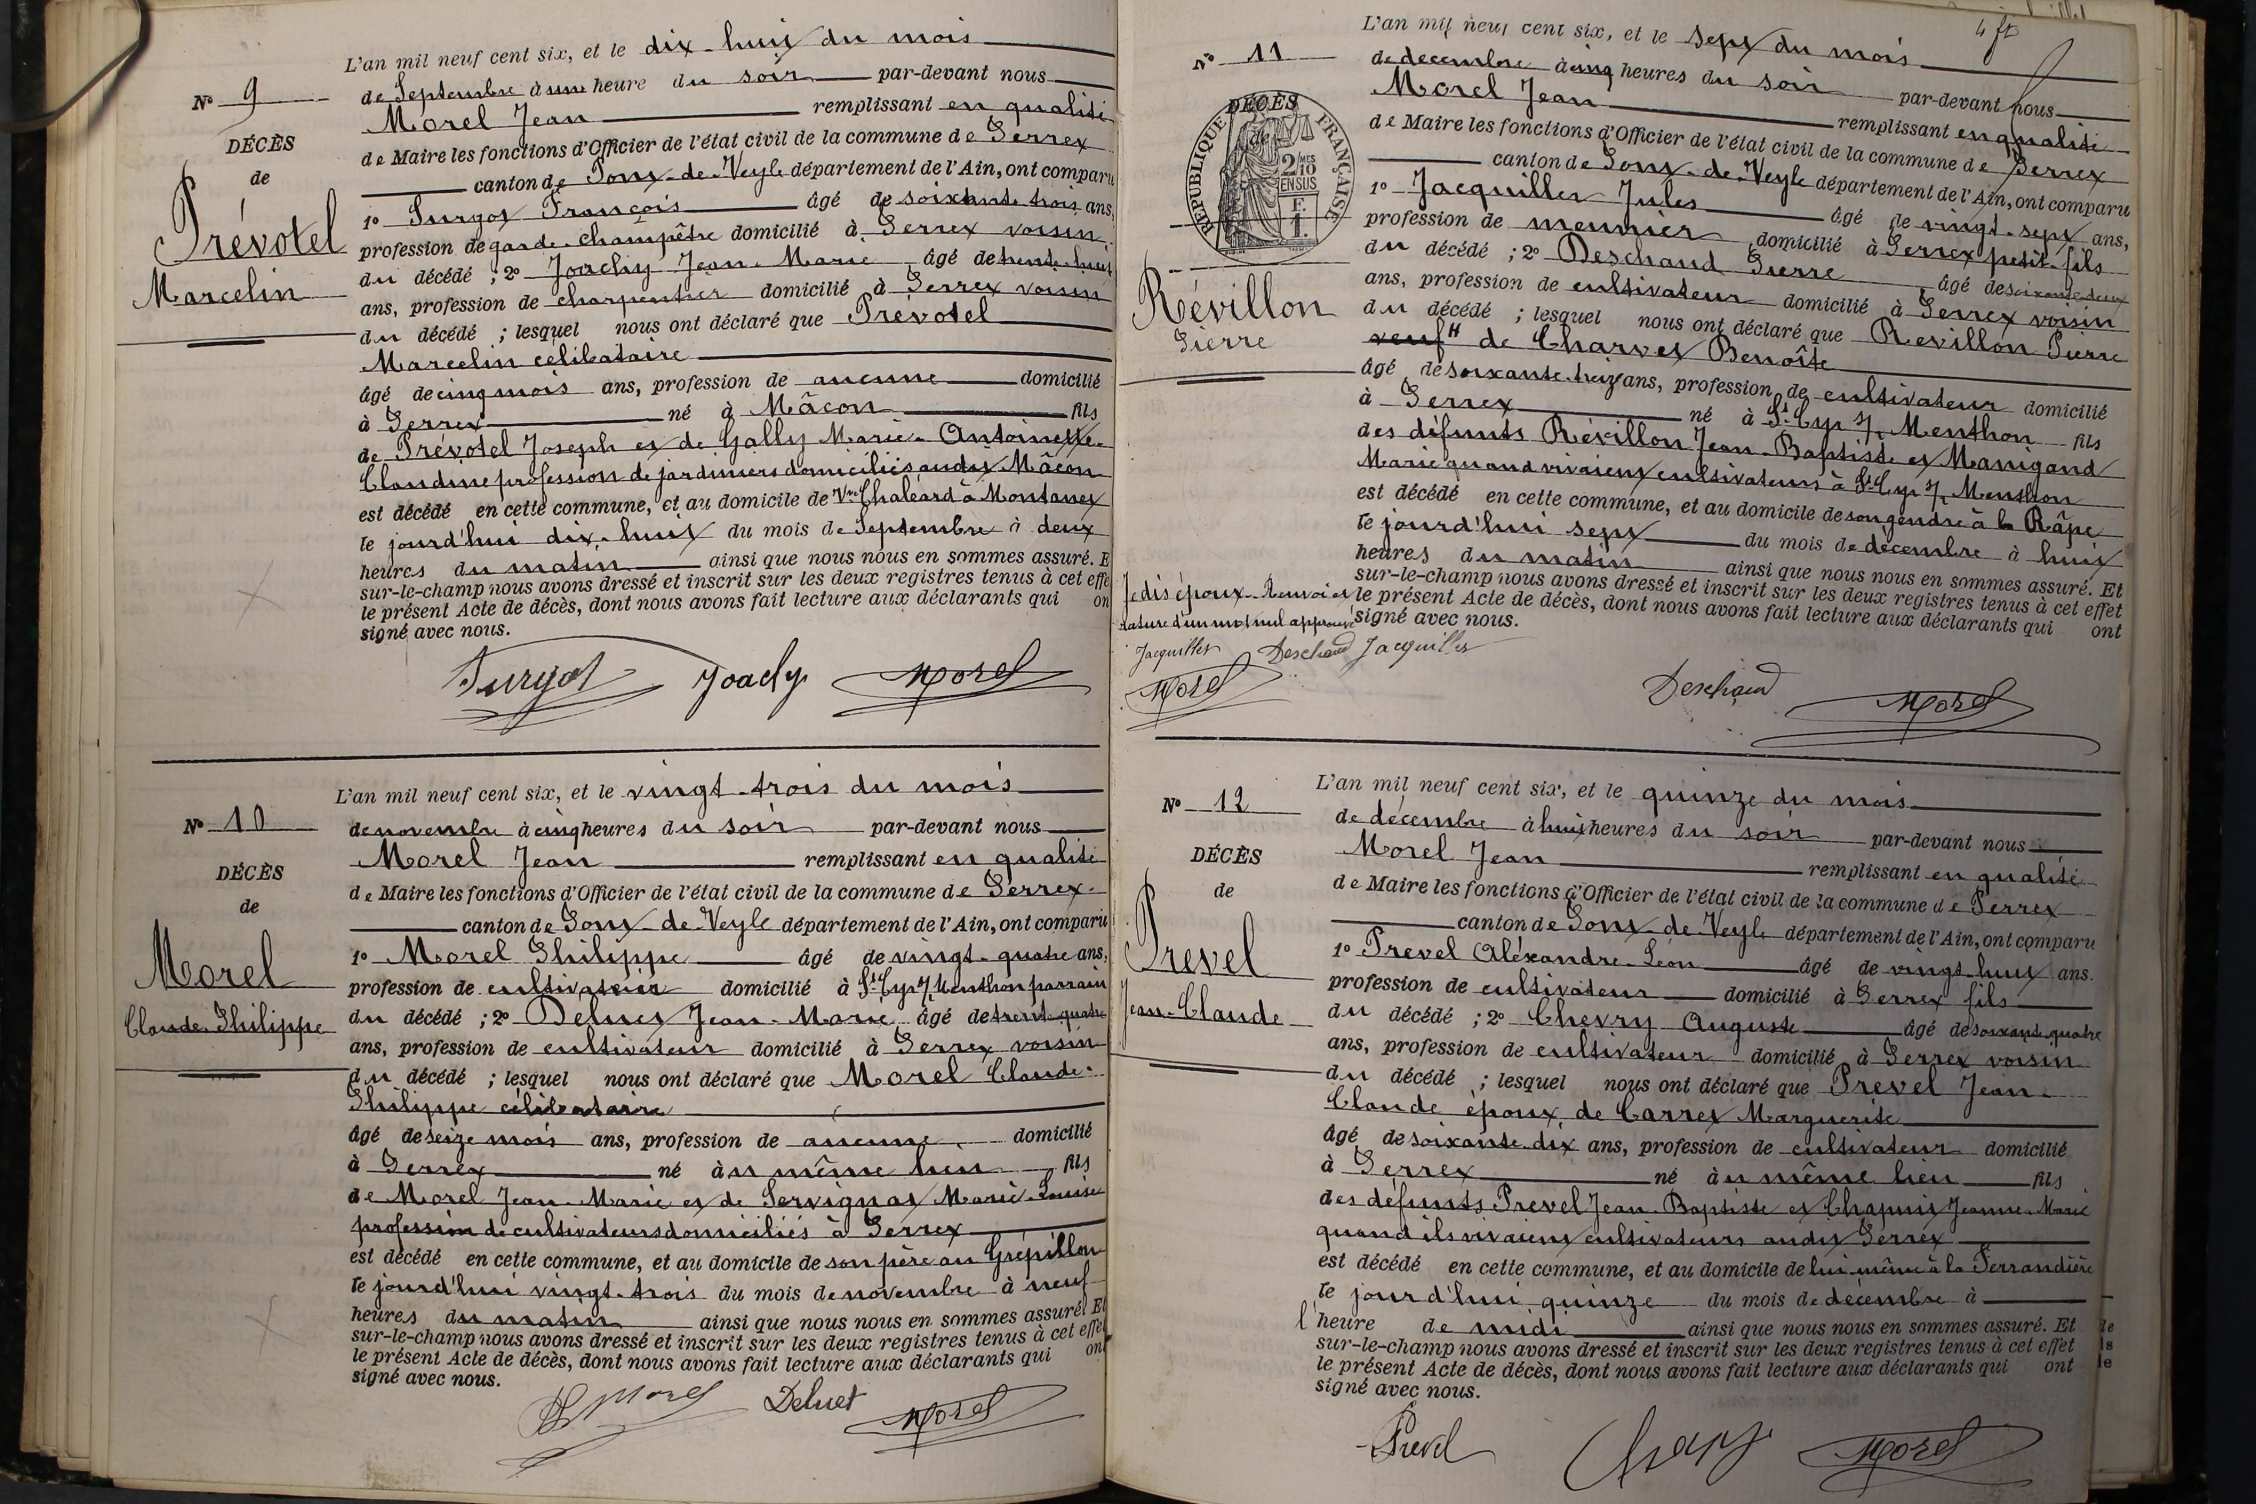 L'an mil neuf cent six, et le dix-huit du mois
N° 9
de Septembre à une heure du soir par-devant nous
Morel Jean remplissant en qualité
DÉCÈS
de Maire les fonctions d'Officier de l'état civil de la commune de Perrex
de
canton de Pont-de-Veyle département de l'Ain, ont comparu
1° Purgot François âgé de soixante trois ans,
Prévotel
profession de garde-champêtre domicilié à Perrex voisin
Marcelin
du décédé ; 2° Joachy Jean-Marie âgé de trente-huit
ans, profession de charpentier domicilié à Perrex voisin
du décédé ; lesquel nous ont déclaré que Prévotel
Marcelin célibataire
âgé de cinq mois ans, profession de aucune domicilié
à Perrex né à Mâcon fils
de Prévotel Joseph et de Gally Marie-Antoinette-
Claudine profession de jardiniers domiciliés audit Mâcon
est décédé en cette commune, et au domicile de Vve Chaléard à Montanet
le jourd'hui dix-huit du mois de Septembre à deux
heures du matin ainsi que nous nous en sommes assuré. E
sur-le-champ nous avons dressé et inscrit sur les deux registres tenus à cet effe
le présent Acte de décès, dont nous avons fait lecture aux déclarants qui on
signé avec nous.
Purgot Joachy Morel
L'an mil neuf cent six, et le vingt-trois du mois
N° 10
de novembre à cinq heures du soir par-devant nous
Morel Jean remplissant en qualité
DÉCÈS
de Maire les fonctions d'Officier de l'état civil de la commune de Perrex
de
canton de Pont-de-Veyle département de l'Ain, ont comparu
1° Morel Philippe âgé de vingt-quatre ans,
Morel
profession de cultivateur domicilié à St Cyr s/ Menthon parrain
Claude-Philippe
du décédé ; 2° Deluet Jean-Marie âgé de trente-quatre
ans, profession de cultivateur domicilié à Perrex voisin
du décédé ; lesquel nous ont déclaré que Morel Claude-
Philippe célibataire
âgé de seize mois ans, profession de aucune domicilié
à Perrex né à u même lieu fils
de Morel Jean-Marie et de Servignat Marie-Louise
profession de cultivateurs domiciliés à Perrex
est décédé en cette commune, et au domicile de son père au Grépillon
le jourd'hui vingt-trois du mois de novembre à neuf
heures du matin ainsi que nous nous en sommes assuré. Et
sur-le-champ nous avons dressé et inscrit sur les deux registres tenus à cet effet
le présent Acte de décès, dont nous avons fait lecture aux déclarants qui ont
signé avec nous.
Morel Deluet Morel
L'an mil neuf cent six, et le sept du mois
N° 11
de decembre à cinq heures du soir par-devant nous
Morel Jean remplissant en qualité
DÉCÈS
de Maire les fonctions d'Officier de l'état civil de la commune de Perrex
de
canton de Pont-de-Veyle département de l'Ain, ont comparu
RÉPUBLIQUE FRANÇAISE
2/10 MES
EN SUS
F.
1.
1° Jacquiller Jules âgé de vingt-sept ans,
profession de meunier domicilié à Perrex petit-fils
du décédé ; 2° Deschaud Pierre âgé de soixante deux
ans, profession de cultivateur domicilié à Perrex voisin
Révillon
Pierre
du décédé ; lesquel nous ont déclaré que Revillon Pierre
veuf H de Charvet Benoîte
âgé de soixante-treize ans, profession de cultivateur domicilié
à Perrex né à St Cyr s/ Menthon fils
des défunts Révillon Jean-Baptiste et Manigand
Marie quand vivaient cultivateurs à St Cyr s/ Menthon
est décédé en cette commune, et au domicile de son gendre à la Râpe
le jourd'hui sept du mois de décembre à huit
heures du matin ainsi que nous nous en sommes assuré. Et
sur-le-champ nous avons dressé et inscrit sur les deux registres tenus à cet effet
le présent Acte de décès, dont nous avons fait lecture aux déclarants qui ont
signé avec nous.
Je dis époux. Renvoi et
rature d'un mot nul approuvé
Jacquiller Deschaud Jacquiller
Morel
Deschaud Morel
L'an mil neuf cent six, et le quinze du mois
N° 12
de décembre à huit heures du soir par-devant nous
Morel Jean remplissant en qualité
DÉCÈS
de Maire les fonctions d'Officier de l'état civil de la commune de Perrex
de
canton de Pont-de-Veyle département de l'Ain, ont comparu
1° Prevel Aléxandre-Léon âgé de vingt-huit ans.
Prevel
profession de cultivateur domicilié à Perrex fils
Jean-Claude
du décédé ; 2° Chevry Auguste âgé de soixante-quatre
ans, profession de cultivateur domicilié à Perrex voisin
du décédé ; lesquel nous ont déclaré que Prevel Jean-
Claude époux de Carret Marguerite
âgé de soixante-dix ans, profession de cultivateur domicilié
à Perrex né à u même lieu fils
des défunts Prevel Jean-Baptiste et Chapuis Jeanne-Marie
quand ils vivaient cultivateurs audit Perrex
est décédé en cette commune, et au domicile de lui-même à la Ferrandière
le jourd'hui quinze du mois de décembre à
l'heure de midi ainsi que nous nous en sommes assuré. Et
sur-le-champ nous avons dressé et inscrit sur les deux registres tenus à cet effet
le présent Acte de décès, dont nous avons fait lecture aux déclarants qui ont
signé avec nous.
Prevel Morel